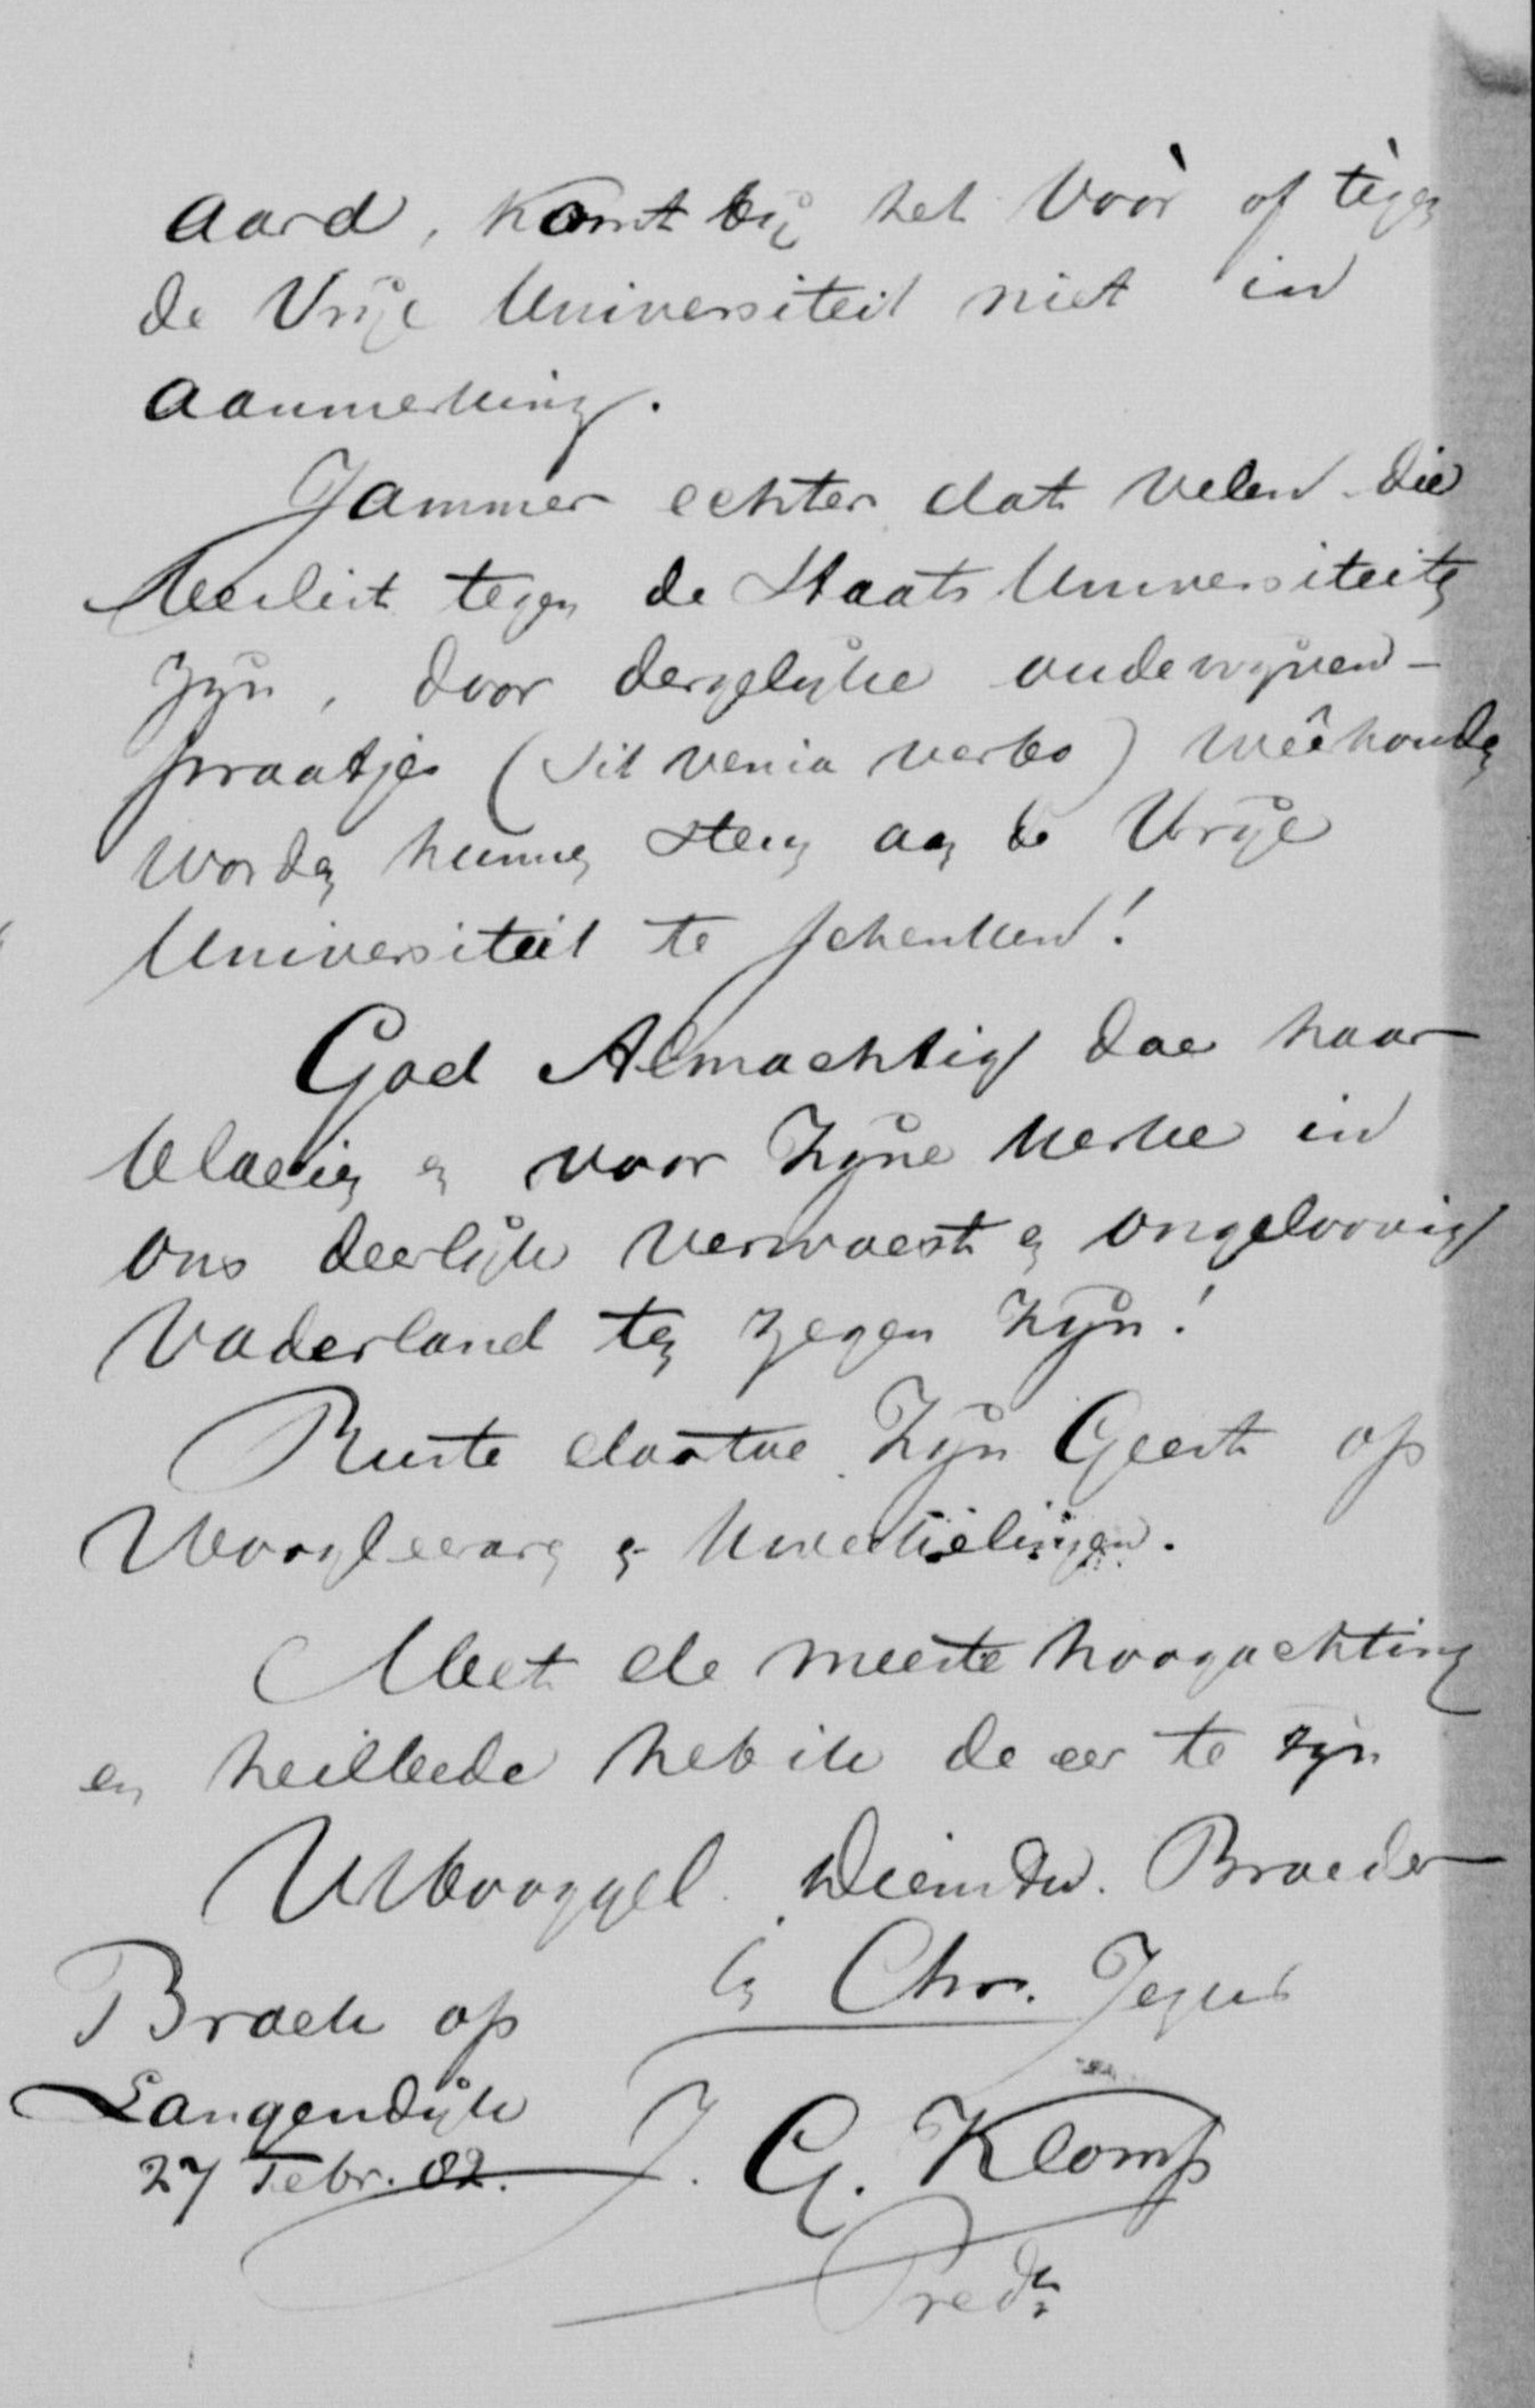 aard, komt bij het vóór of tégen
de Vrije Universiteit niet in
aanmerking.
Jammer echter dat velen die
beslist tegen de Staats Universiteiten
zijn, door dergelijke oudewijven-
praatjes (sit venia verbo) weêrhouden
worden hunnen steun aan de Vrije
Universiteit te schenken!
God Almachtig doe haar
bloeien en voor Zijne Kerke in
ons deerlijk verwoest en ongeloovig
Vaderland ten zegen zijn!
Ruste daartoe Zijn Geest op
Hoogleeraren en kweekelingen.
Met de meeste hoogachting
en heilbede heb ik de eer te zijn
UHooggel. Dienstw. Broeder
in Chr. Jezus
Broek op
Langendijk
27 Febr. 82.
J. G. Klomp
Predt